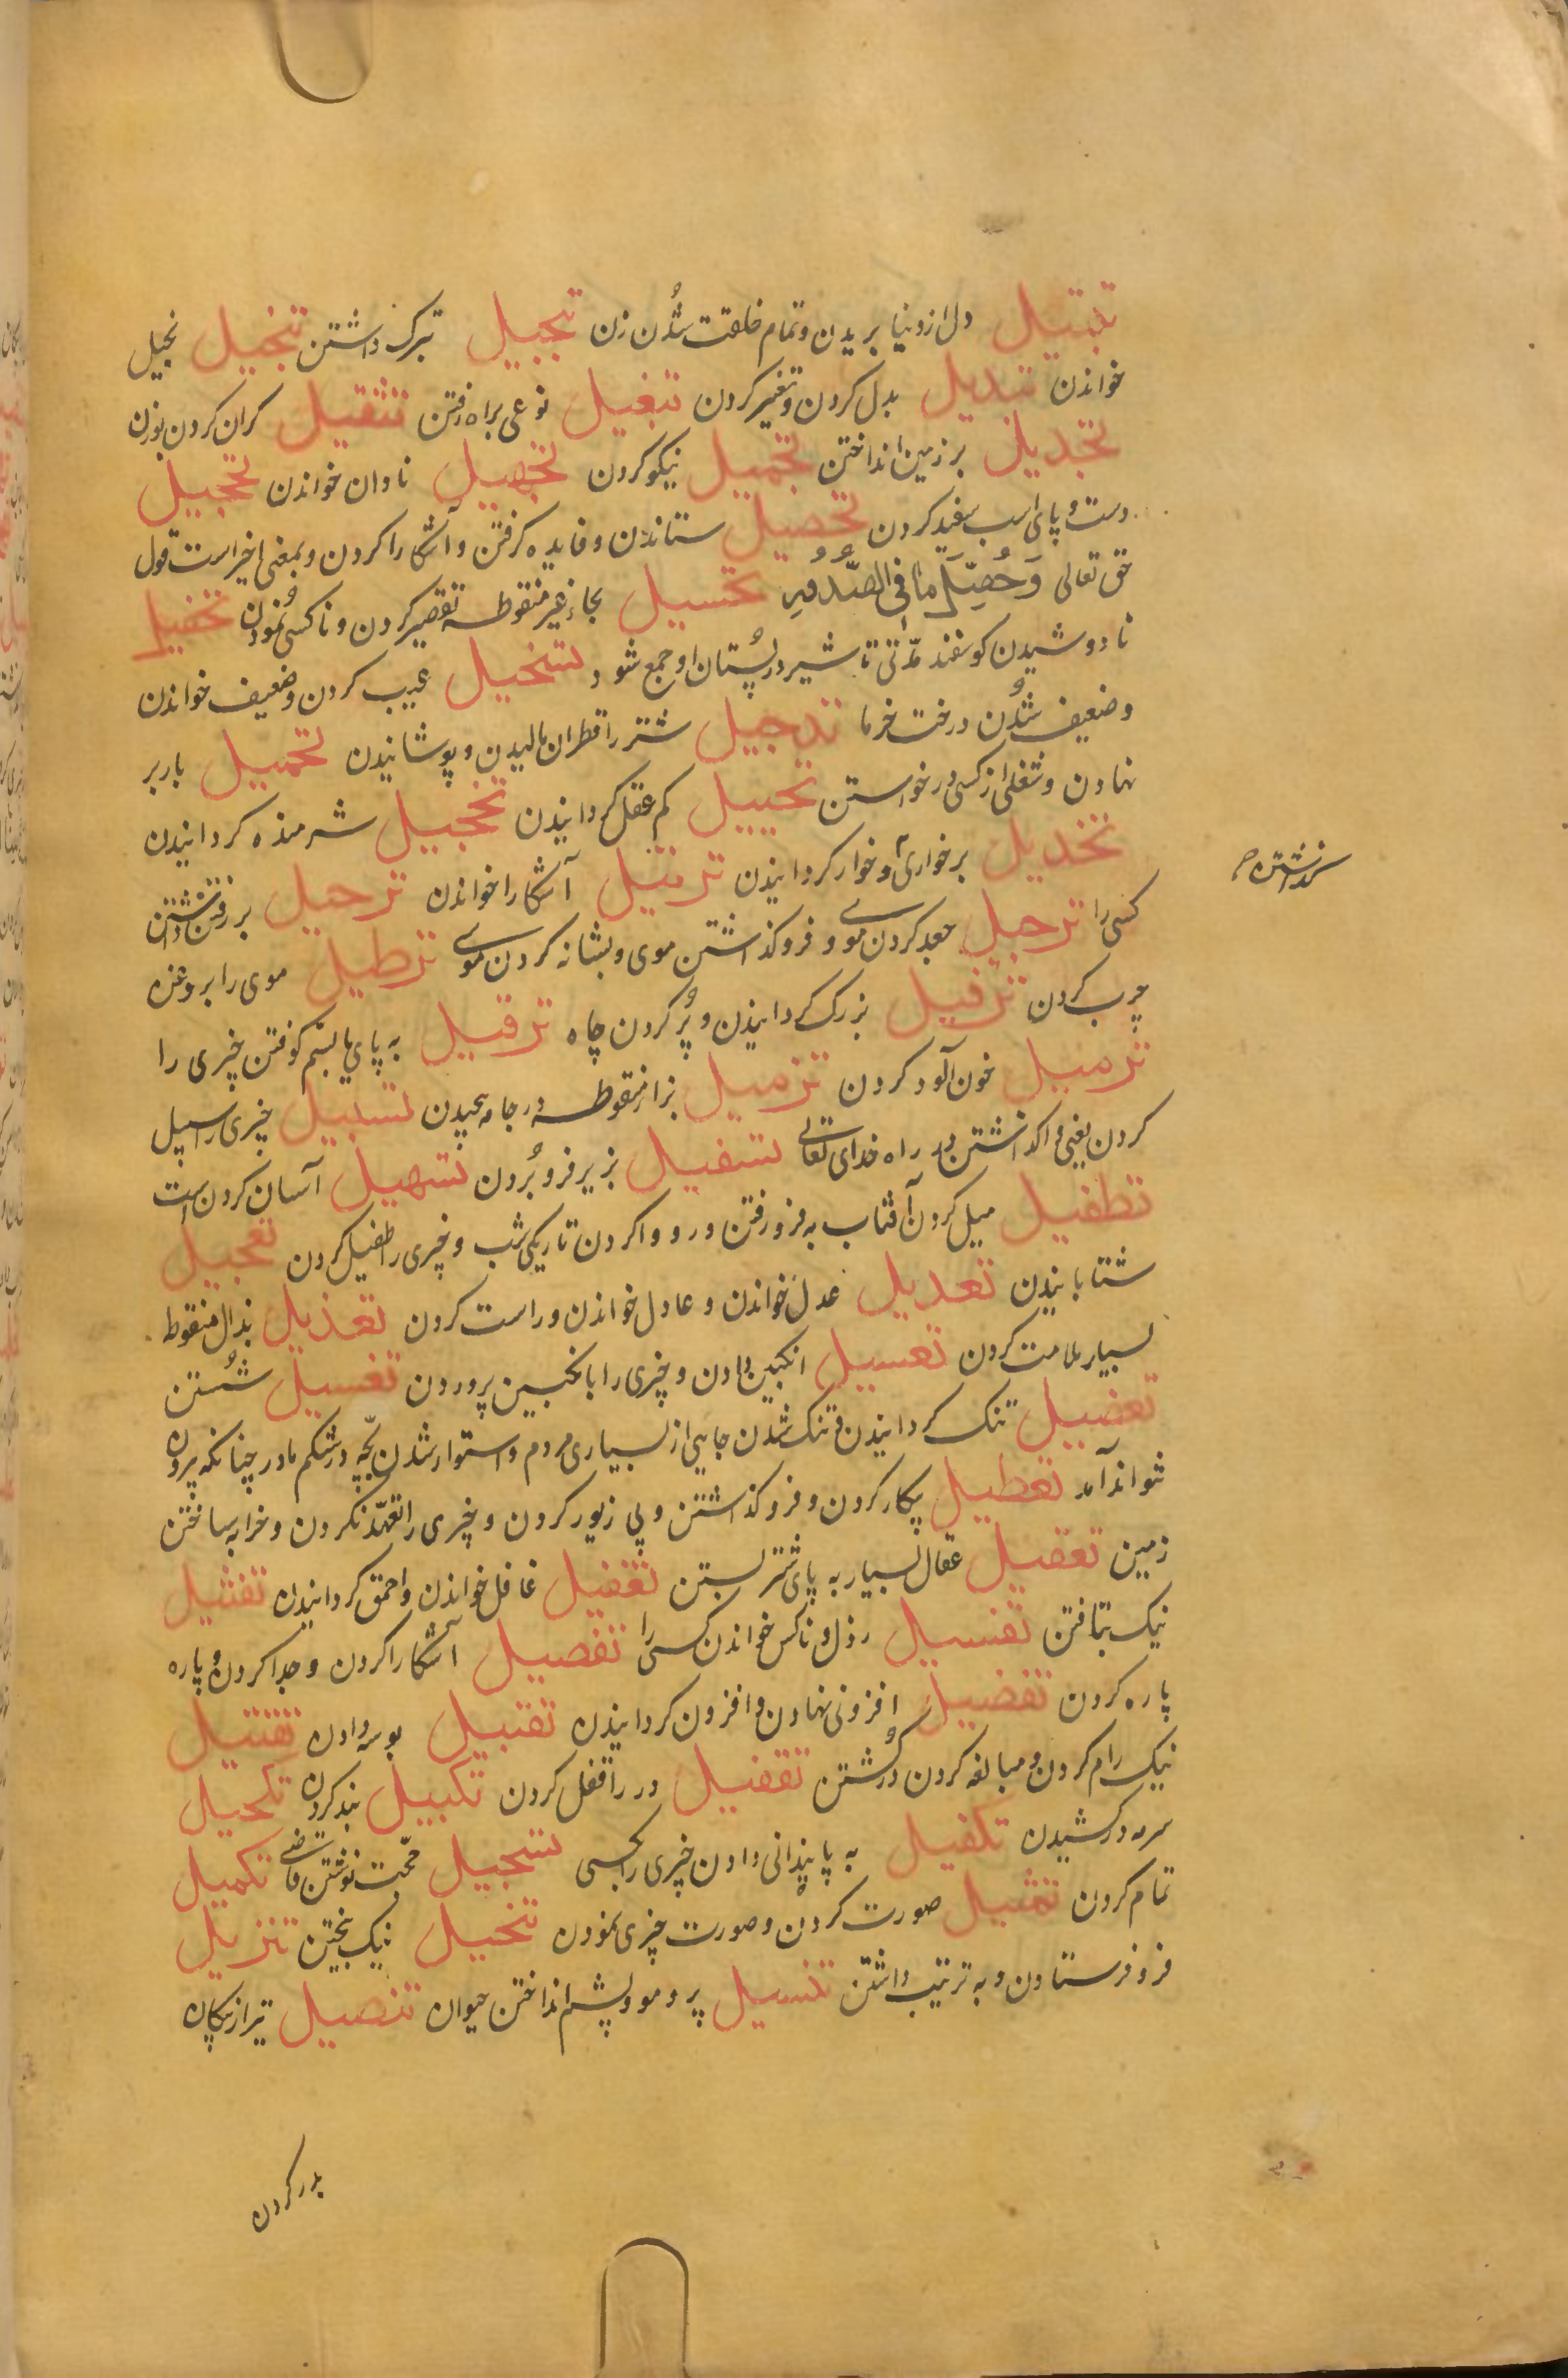 تبتیل دل از دنیا بریدن و تمام خلقت شُدن زن تبجیل بزرک داشتن تبخیل بخیل
خواندن تبدیل بدل کردن و تغییر کردن تبغیل نوعی براه رفتن تثقیل کران کردن بوزن
تجدیل بر زمین انداختن تجمیل نیکو کردن تجهیل نادان خواندن تحجیل
دست و پای اسب سفید کردن تحصیل ستاندن و فایده کرفتن و آشکارا کردن و بمعنی اخیر است قول
حق تعالی وَحُصِّلَ مَا فِی الصُّدُورِ تحسیل بحاء غیر منقوطه تقصیر کردن و ناکسی نمُودن تحفیل
نادوشیدن کوسفند مدّتی تا شیر در پُستان او جمع شود تسخیل عیب کردن و ضعیف خواندن
و ضعیف شُدن درخت خرما تدجیل شتر را قطران مالیدن و پوشانیدن تحمیل بار بر
نهادن و شغلی از کسی درخواستن تخبیل کم عقل کردانیدن تخجیل شرمنده کردانیدن
تخدیل بر خواری و خوار کردانیدن ترتیل آشکارا خواندن ترحیل بر رفتن داشتن
کسی را ترجیل جعد کردن موی و فرو کذاشتن موی و بشانه کردن موی ترطیل موی را بروغن
چرب کردن ترفیل بزرک کردانیدن و پُر کردن چاه ترقیل به پای یا بسُم کوفتن چیزی را
ترمیل خون آلود کردن تزمیل بزاء منقوطه در جامه پیچیدن تسبیل چیزی را سبیل
کردن یعنی واکذاشتن در راه خدای تعالی تسفیل بزیر فرو بُردن تسهیل آسان کردن است
تطفیل میل کردن آفتاب به فرو رفتن و رو وا کردن تاریکی شب و چیزی را طفیل کردن تعجیل
شتابانیدن تعدیل عدل خواندن و عادل خواندن و راست کردن تعذیل بذال منقوط
بسیار ملامت کردن تعسیل انکبین دادن و چیزی را بانکبین پروردن تغسیل شُستن
تعضیل تنک کردانیدن و تنک شدن جایی از بسیاری مردم و استوار شدن بچّه در شکم مادر چنانکه بیرون
نتواند آمد تعطیل بیکار کردن و فرو کذاشتن و بی زیور کردن و چیزی را تعهّد نکردن و خراب ساختن
زمین تعقیل عقال بسیار به پای شتر بستن تغفیل غافل خواندن و احمق کردانیدن تفتیل
نیک بتافتن تفسیل رذل و ناکس خواندن کسی را تفصیل آشکارا کردن و جدا کردن و پاره
پاره کردن تفضیل افزونی نهادن و افزون کردانیدن تقبیل بوسه دادن تقتیل
نیک رام کردن و مبالغه کردن در کُشتن تقفیل در را قفل کردن تکبیل بند کردن تکحیل
سرمه درکشیدن تکفیل به پایندانی دادن چیزی را بکسی تسجیل حجّت نوشتن قاضی تکمیل
تمام کردن تمثیل صورت کردن و صورت چیزی نمودن تنخیل نیک بیختن تنزیل
فرو فرستادن و به ترتیب داشتن تنسیل پر و مو و پشم انداختن حیوان تنصیل تیر از پیکان
بدر کردن